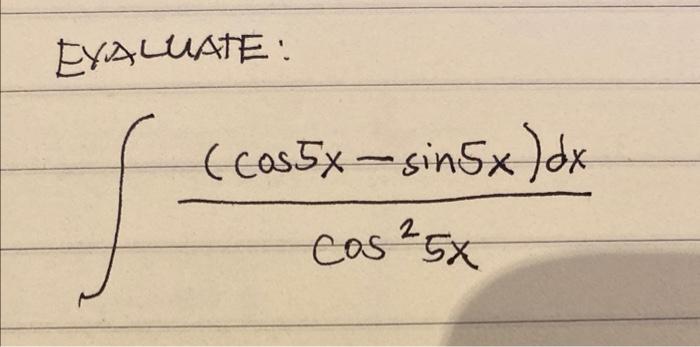 EVALUATE:
∫ (cos5x - sin5x)dx
cos²5x